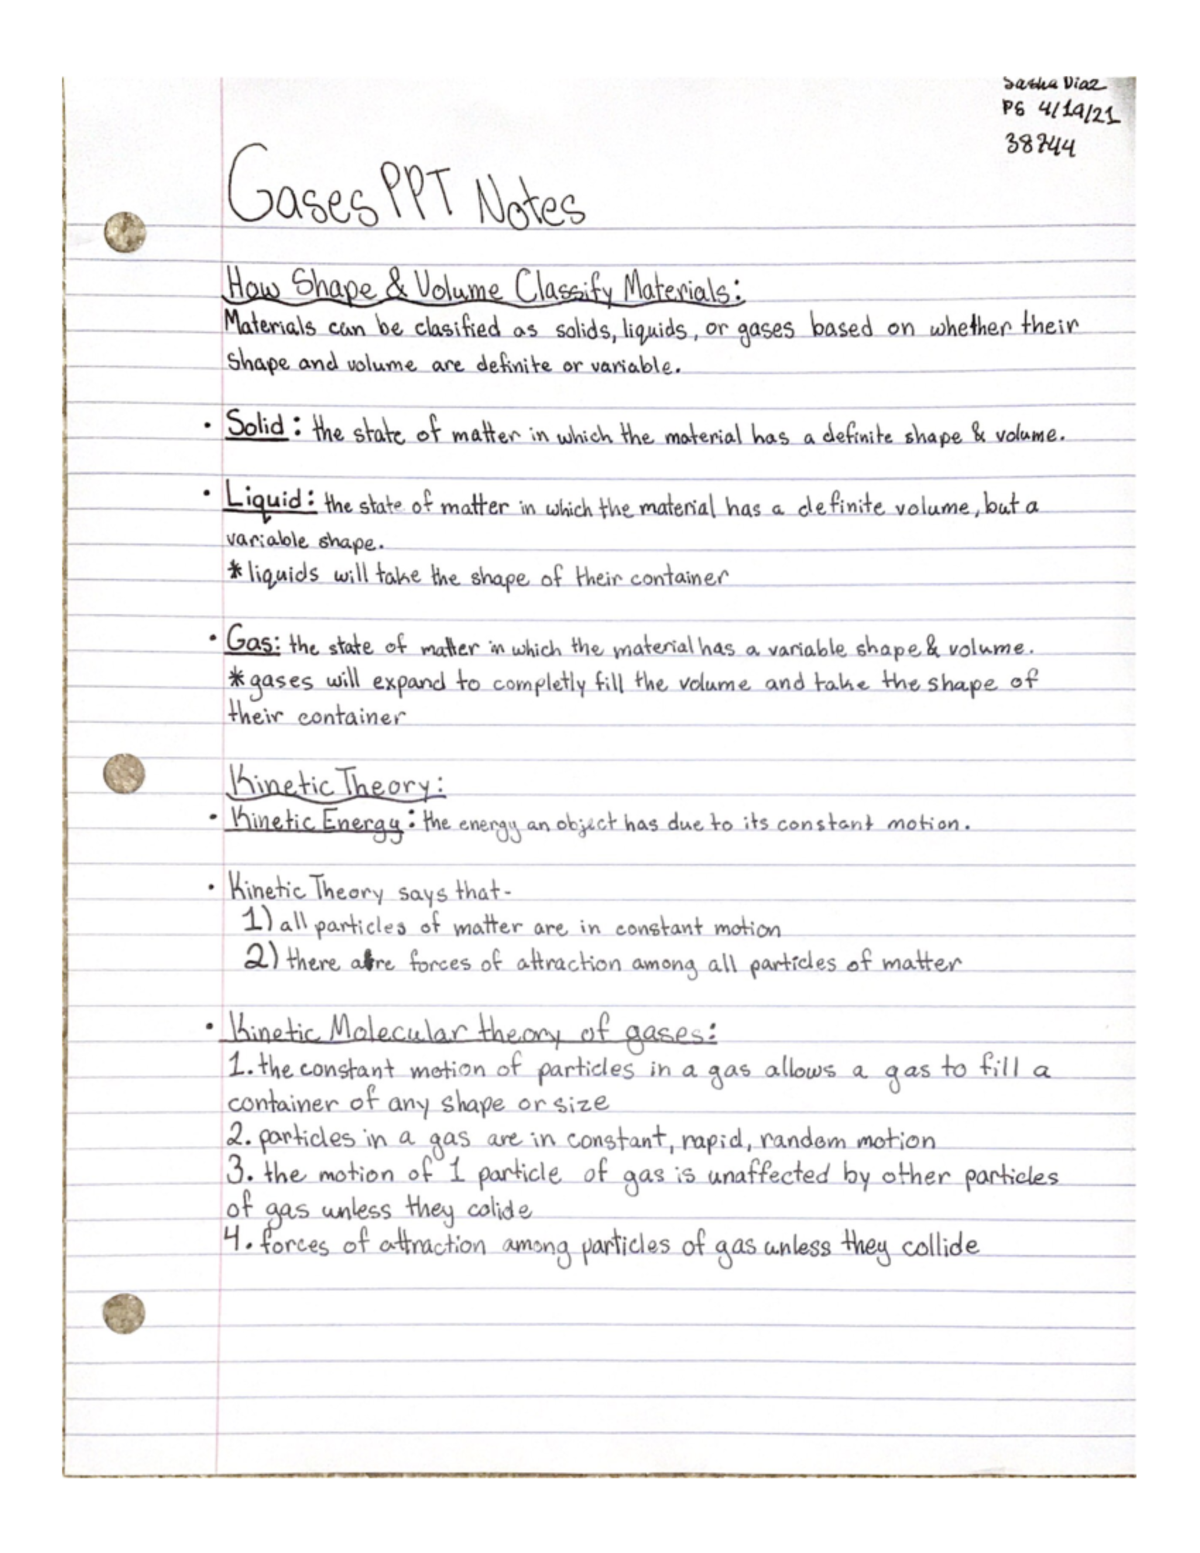 Sasha Diaz
P6 4/19/21
38744
Gases PPT Notes
How Shape & Volume Classify Materials:
Materials can be clasified as solids, liquids, or gases based on whether their
shape and volume are definite or variable.
• Solid: the state of matter in which the material has a definite shape & volume.
• Liquid: the state of matter in which the material has a definite volume, but a
variable shape.
* liquids will take the shape of their container
• Gas: the state of matter in which the material has a variable shape & volume.
* gases will expand to completly fill the volume and take the shape of
their container
Kinetic Theory:
• Kinetic Energy: the energy an object has due to its constant motion.
• Kinetic Theory says that-
1) all particles of matter are in constant motion
2) there are forces of attraction among all particles of matter
• Kinetic Molecular theory of gases:
1. the constant motion of particles in a gas allows a gas to fill a
container of any shape or size
2. particles in a gas are in constant, rapid, random motion
3. the motion of 1 particle of gas is unaffected by other particles
of gas unless they colide
4. forces of attraction among particles of gas unless they collide